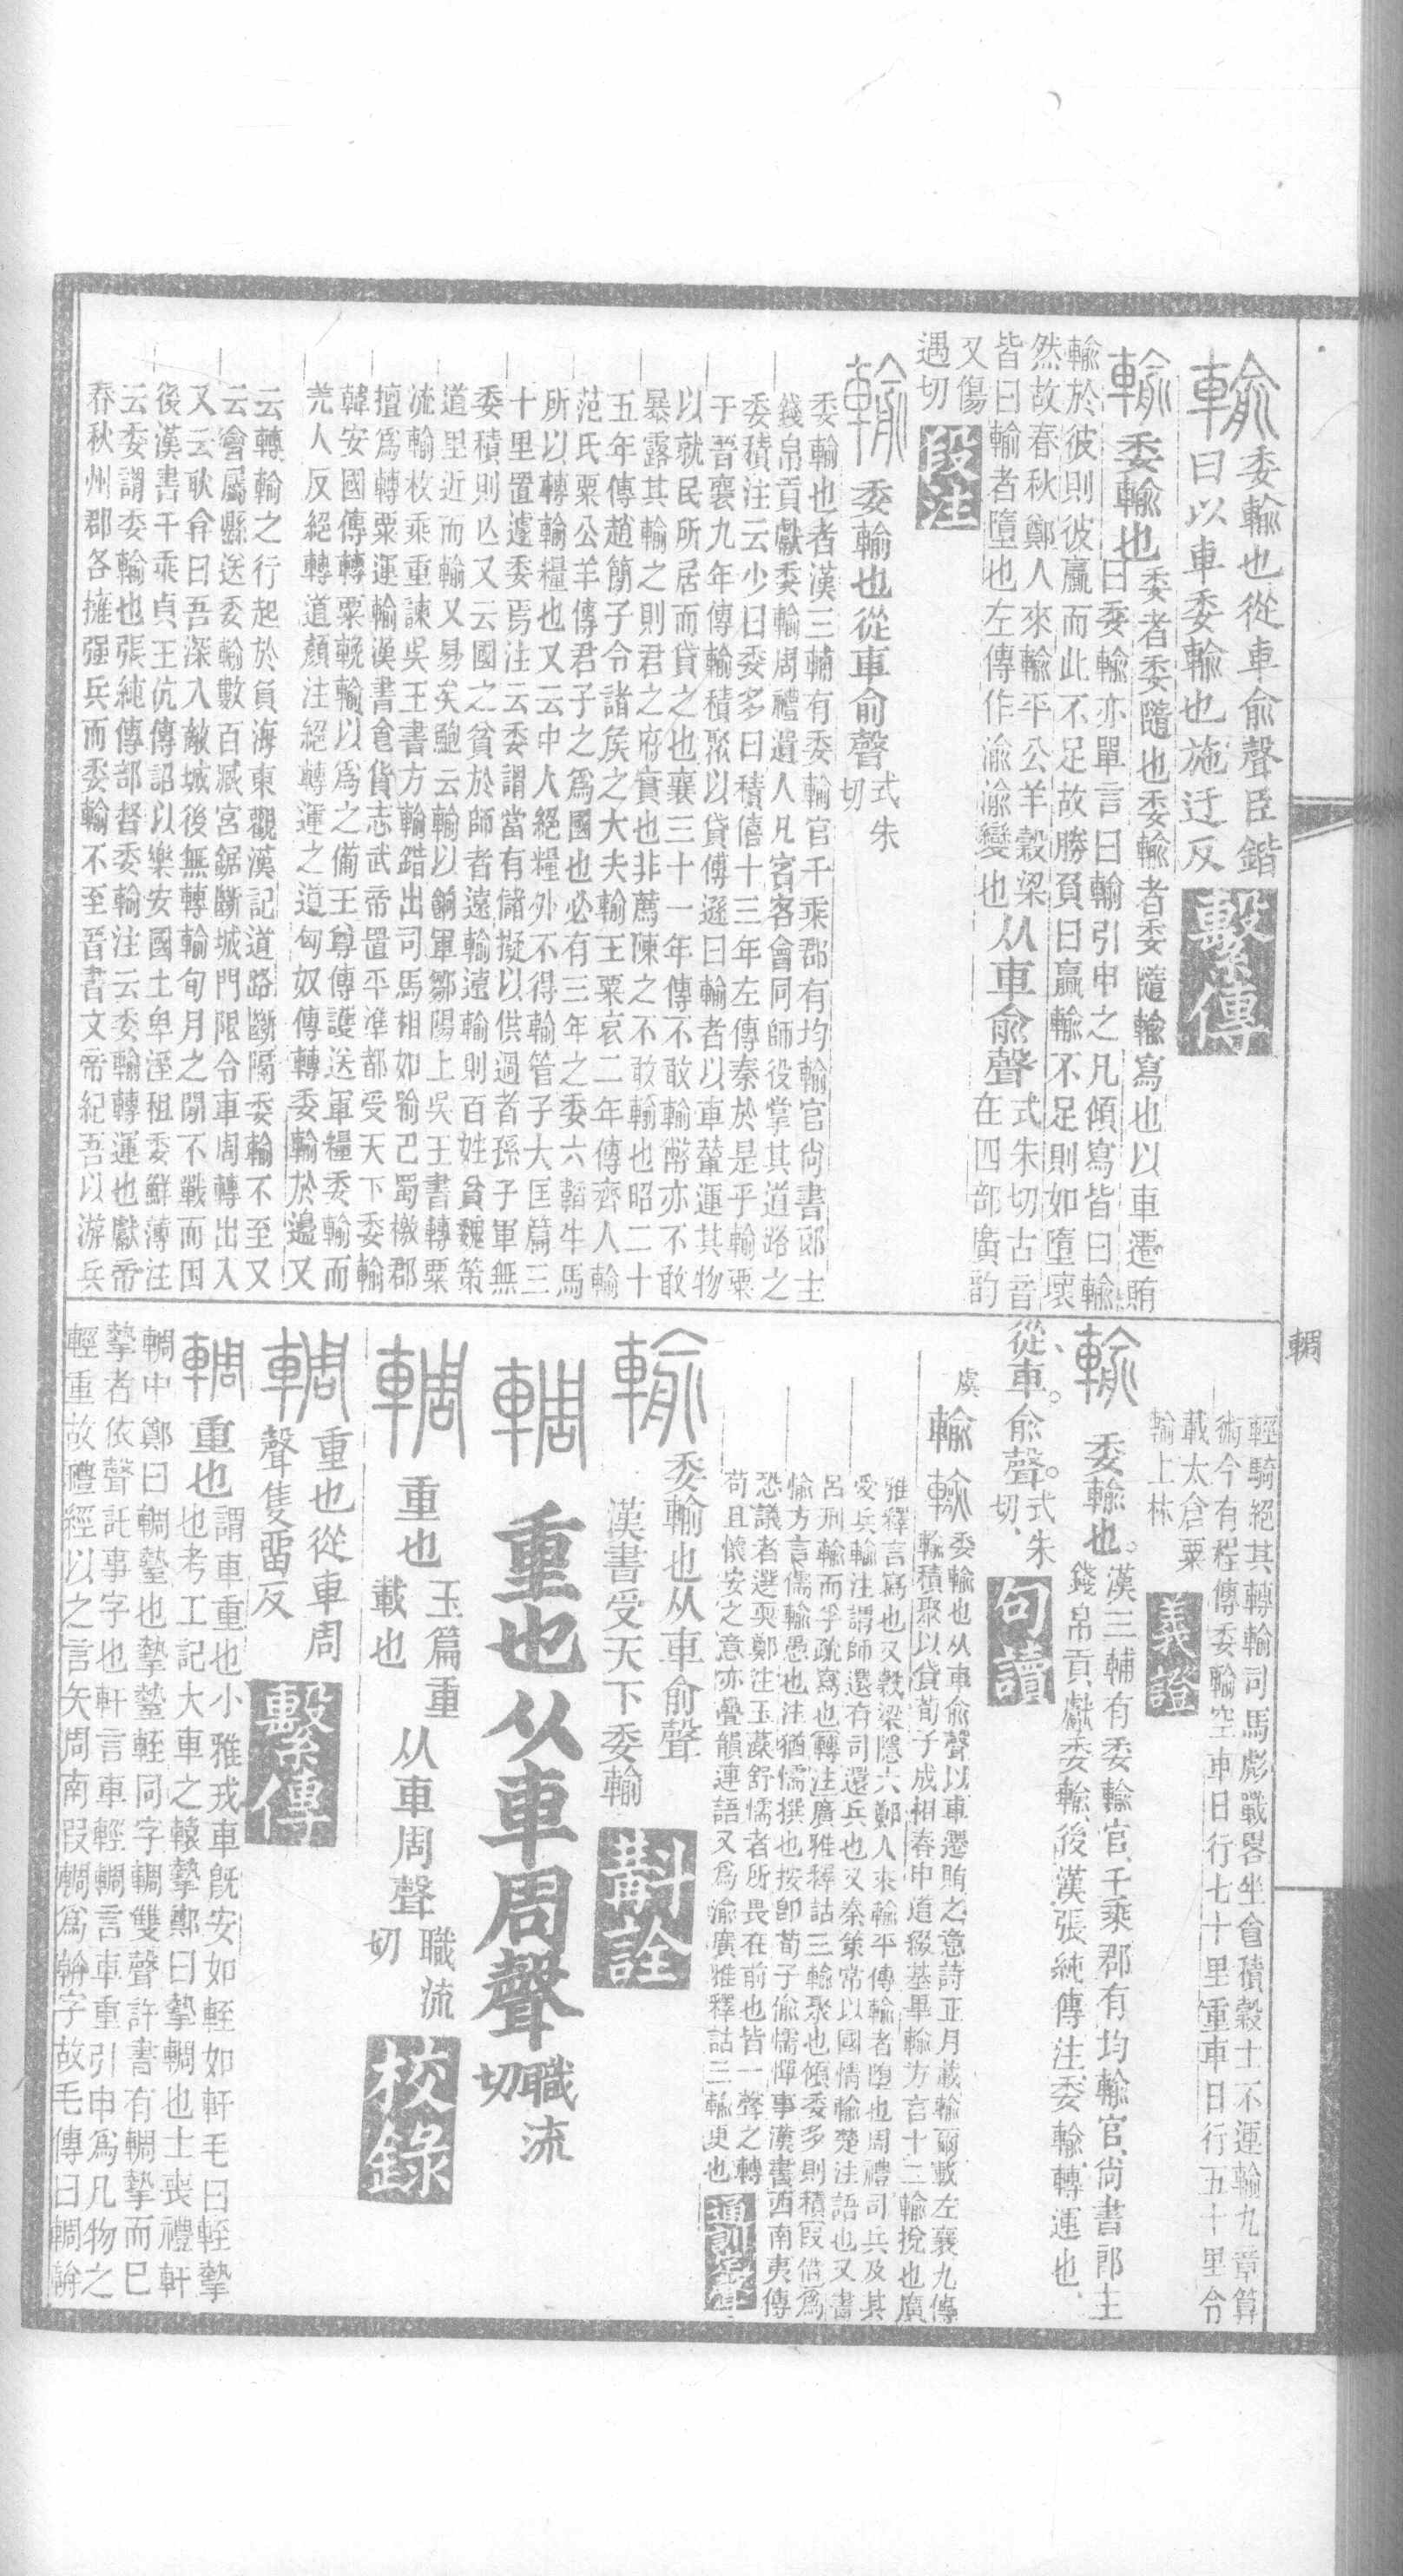 輸委輸也從車俞聲臣鍇
曰以車委輸也施迂反
繫傳
輸委輸也委者委隨也委輸者委隨輸寫也以車遷賄
曰委輸亦單言曰輸引申之凡傾寫皆曰輸
輸於彼則彼贏而此不足故勝負曰贏輸不足則如墮壞
然故春秋鄭人來輸平公羊穀梁
皆曰輸者墮也左傳作渝渝變也从車俞聲式朱切古音在四部廣韵
又傷
遇切
段注
輸委輸也從車俞聲式朱切
委輸也者漢三輔有委輸官千乘郡有均輸官尚書郎主
錢帛貢獻委輸周禮遺人凡賓客會同師役掌其道路之
委積注云少曰委多曰積僖十三年左傳秦於是乎輸粟
于晉襄九年傳輸積聚以貸傅遜曰輸者以車輦運其物
以就民所居而貸之也襄三十一年傳不敢輸幣亦不敢
暴露其輸之則君之府實也非薦陳之不敢輸也昭二十
五年傳趙簡子令諸侯之大夫輸王粟哀二年傳齊人輸
范氏粟公羊傳君子之爲國也必有三年之委六韜牛馬
所以轉輸糧也又云中人絕糧外不得輸管子大匡篇三
十里置遽委焉注云委謂當有儲擬以供過者孫子軍無
委積則亾又云國之貧於師者遠輸遠輸則百姓貧魏策
道里近而輸又易矣鮑云輸以餉軍鄒陽上吳王書轉粟
流輸枚乘重諫吳王書方輸錯出司馬相如喻巴蜀檄郡
擅爲轉粟運輸漢書食貨志武帝置平準都受天下委輸
韓安國傳轉粟輓輸以爲之備王尊傳護送軍糧委輸而
羌人反絕轉道顏注絕轉運之道匈奴傳轉委輸於邊又
云轉輸之行起於負海東觀漢記道路斷隔委輸不至又
云會屬縣送委輸數百臧宮鋸斷城門限令車周轉出入
又云耿弇曰吾深入敵城後無轉輸旬月之閒不戰而困
後漢書千乘貞王伉傳詔以樂安國土卑溼租委鮮薄注
云委謂委輸也張純傳部督委輸注云委輸轉運也獻帝
春秋州郡各擁强兵而委輸不至晉書文帝紀吾以游兵
輖
輕騎絕其轉輸司馬彪戰畧坐食積穀士不運輸九章算
術今有程傳委輸空車日行七十里重車日行五十里今
載太倉粟
輸上林
義證
輸委輸也。漢三輔有委輸官、千乘郡有均輸官、尚書郎主
錢帛貢獻委輸、後漢張純傳注、委輸、轉運也、
從車。俞聲。式朱切、
句讀
虞
輸輸委輸也从車俞聲以車遷賄之意詩正月載輸爾載左襄九傳
輸積聚以貸荀子成相春申道綴基畢輸方言十二輸挩也廣
雅釋言寫也又穀梁隱六鄭人來輸平傳輸者墮也周禮司兵及其
受兵輸注謂師還有司還兵也又秦策常以國情輸楚注語也又書
呂刑輸而孚疏寫也轉注廣雅釋詁三輸聚也傾委多則積叚借爲
愉方言儒輸愚也注猶懦撰也按卽荀子偷懦憚事漢書西南夷傳
恐議者選耎鄭注玉藻舒懦者所畏在前也皆一聲之轉
苟且懷安之意亦疊韻連語又爲渝廣雅釋詁三輸更也
通訓定聲
輸委輸也从車俞聲
漢書受天下委輸
斠詮
輖重也从車周聲職流切
輖重也玉篇重載也从車周聲職流切
校錄
輖重也從車周
聲隻畱反
繫傳
輖重也謂車重也小雅戎車旣安如輊如軒毛曰輊摯
也考工記大車之轅摯鄭曰摯輖也士喪禮軒
輖中鄭曰輖蟄也摯蟄輊同字輖雙聲許書有輖摯而已
摯者依聲託事字也軒言車輕輖言車重引申爲凡物之
輕重故禮經以之言矢周南叚輖爲輈字故毛傳曰輖輈